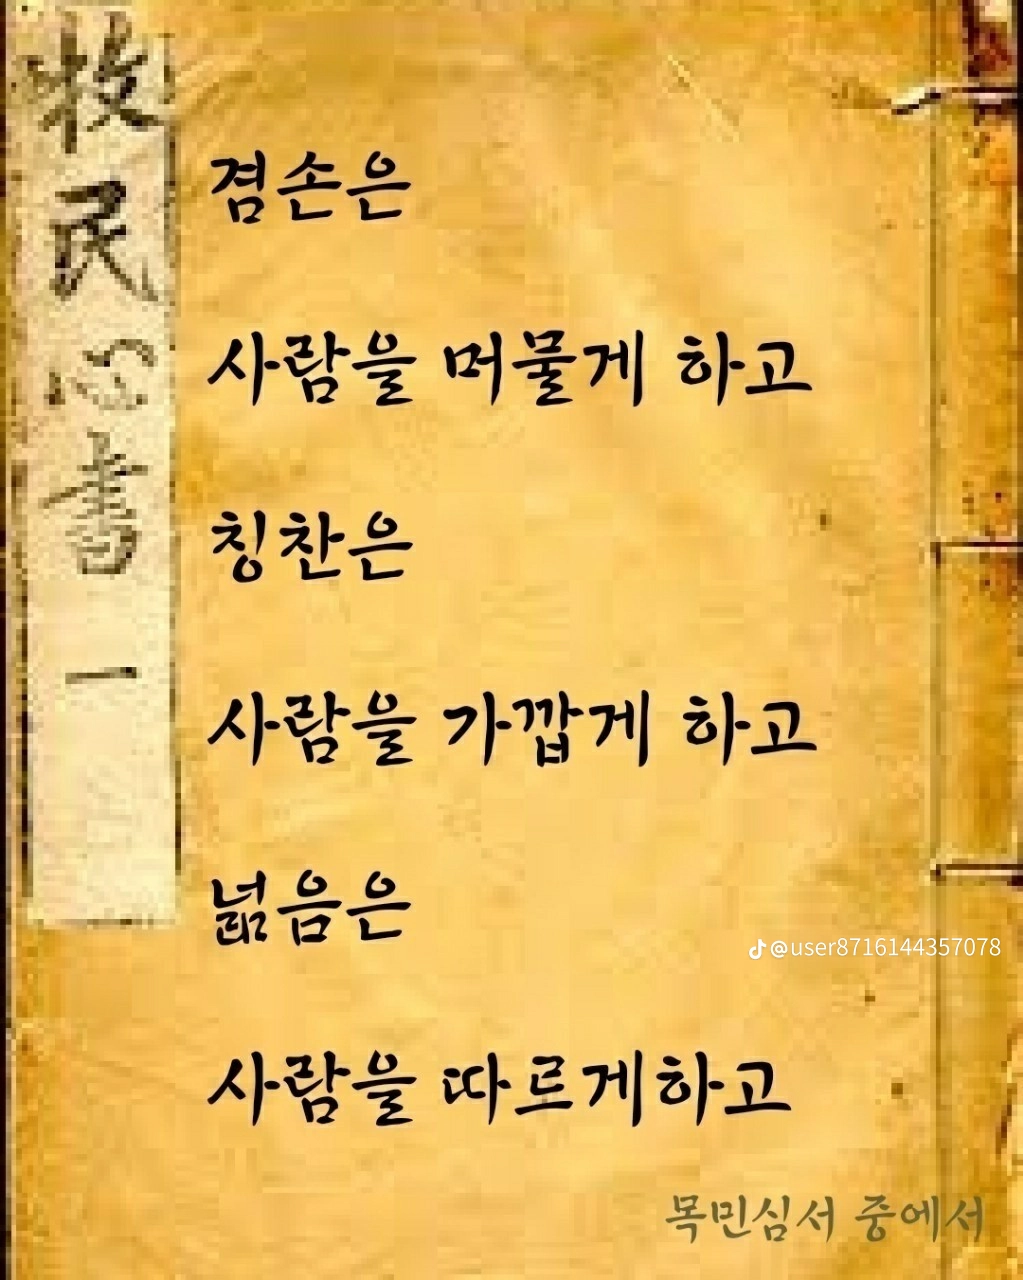 牧民心書 一
겸손은
사람을 머물게 하고
칭찬은
사람을 가깝게 하고
넓음은
사람을 따르게하고
@user8716144357078
목민심서 중에서